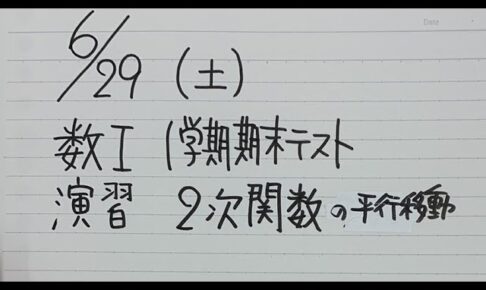 Date
6/29 (土)
数I 1学期期末テスト
演習 2次関数の平行移動